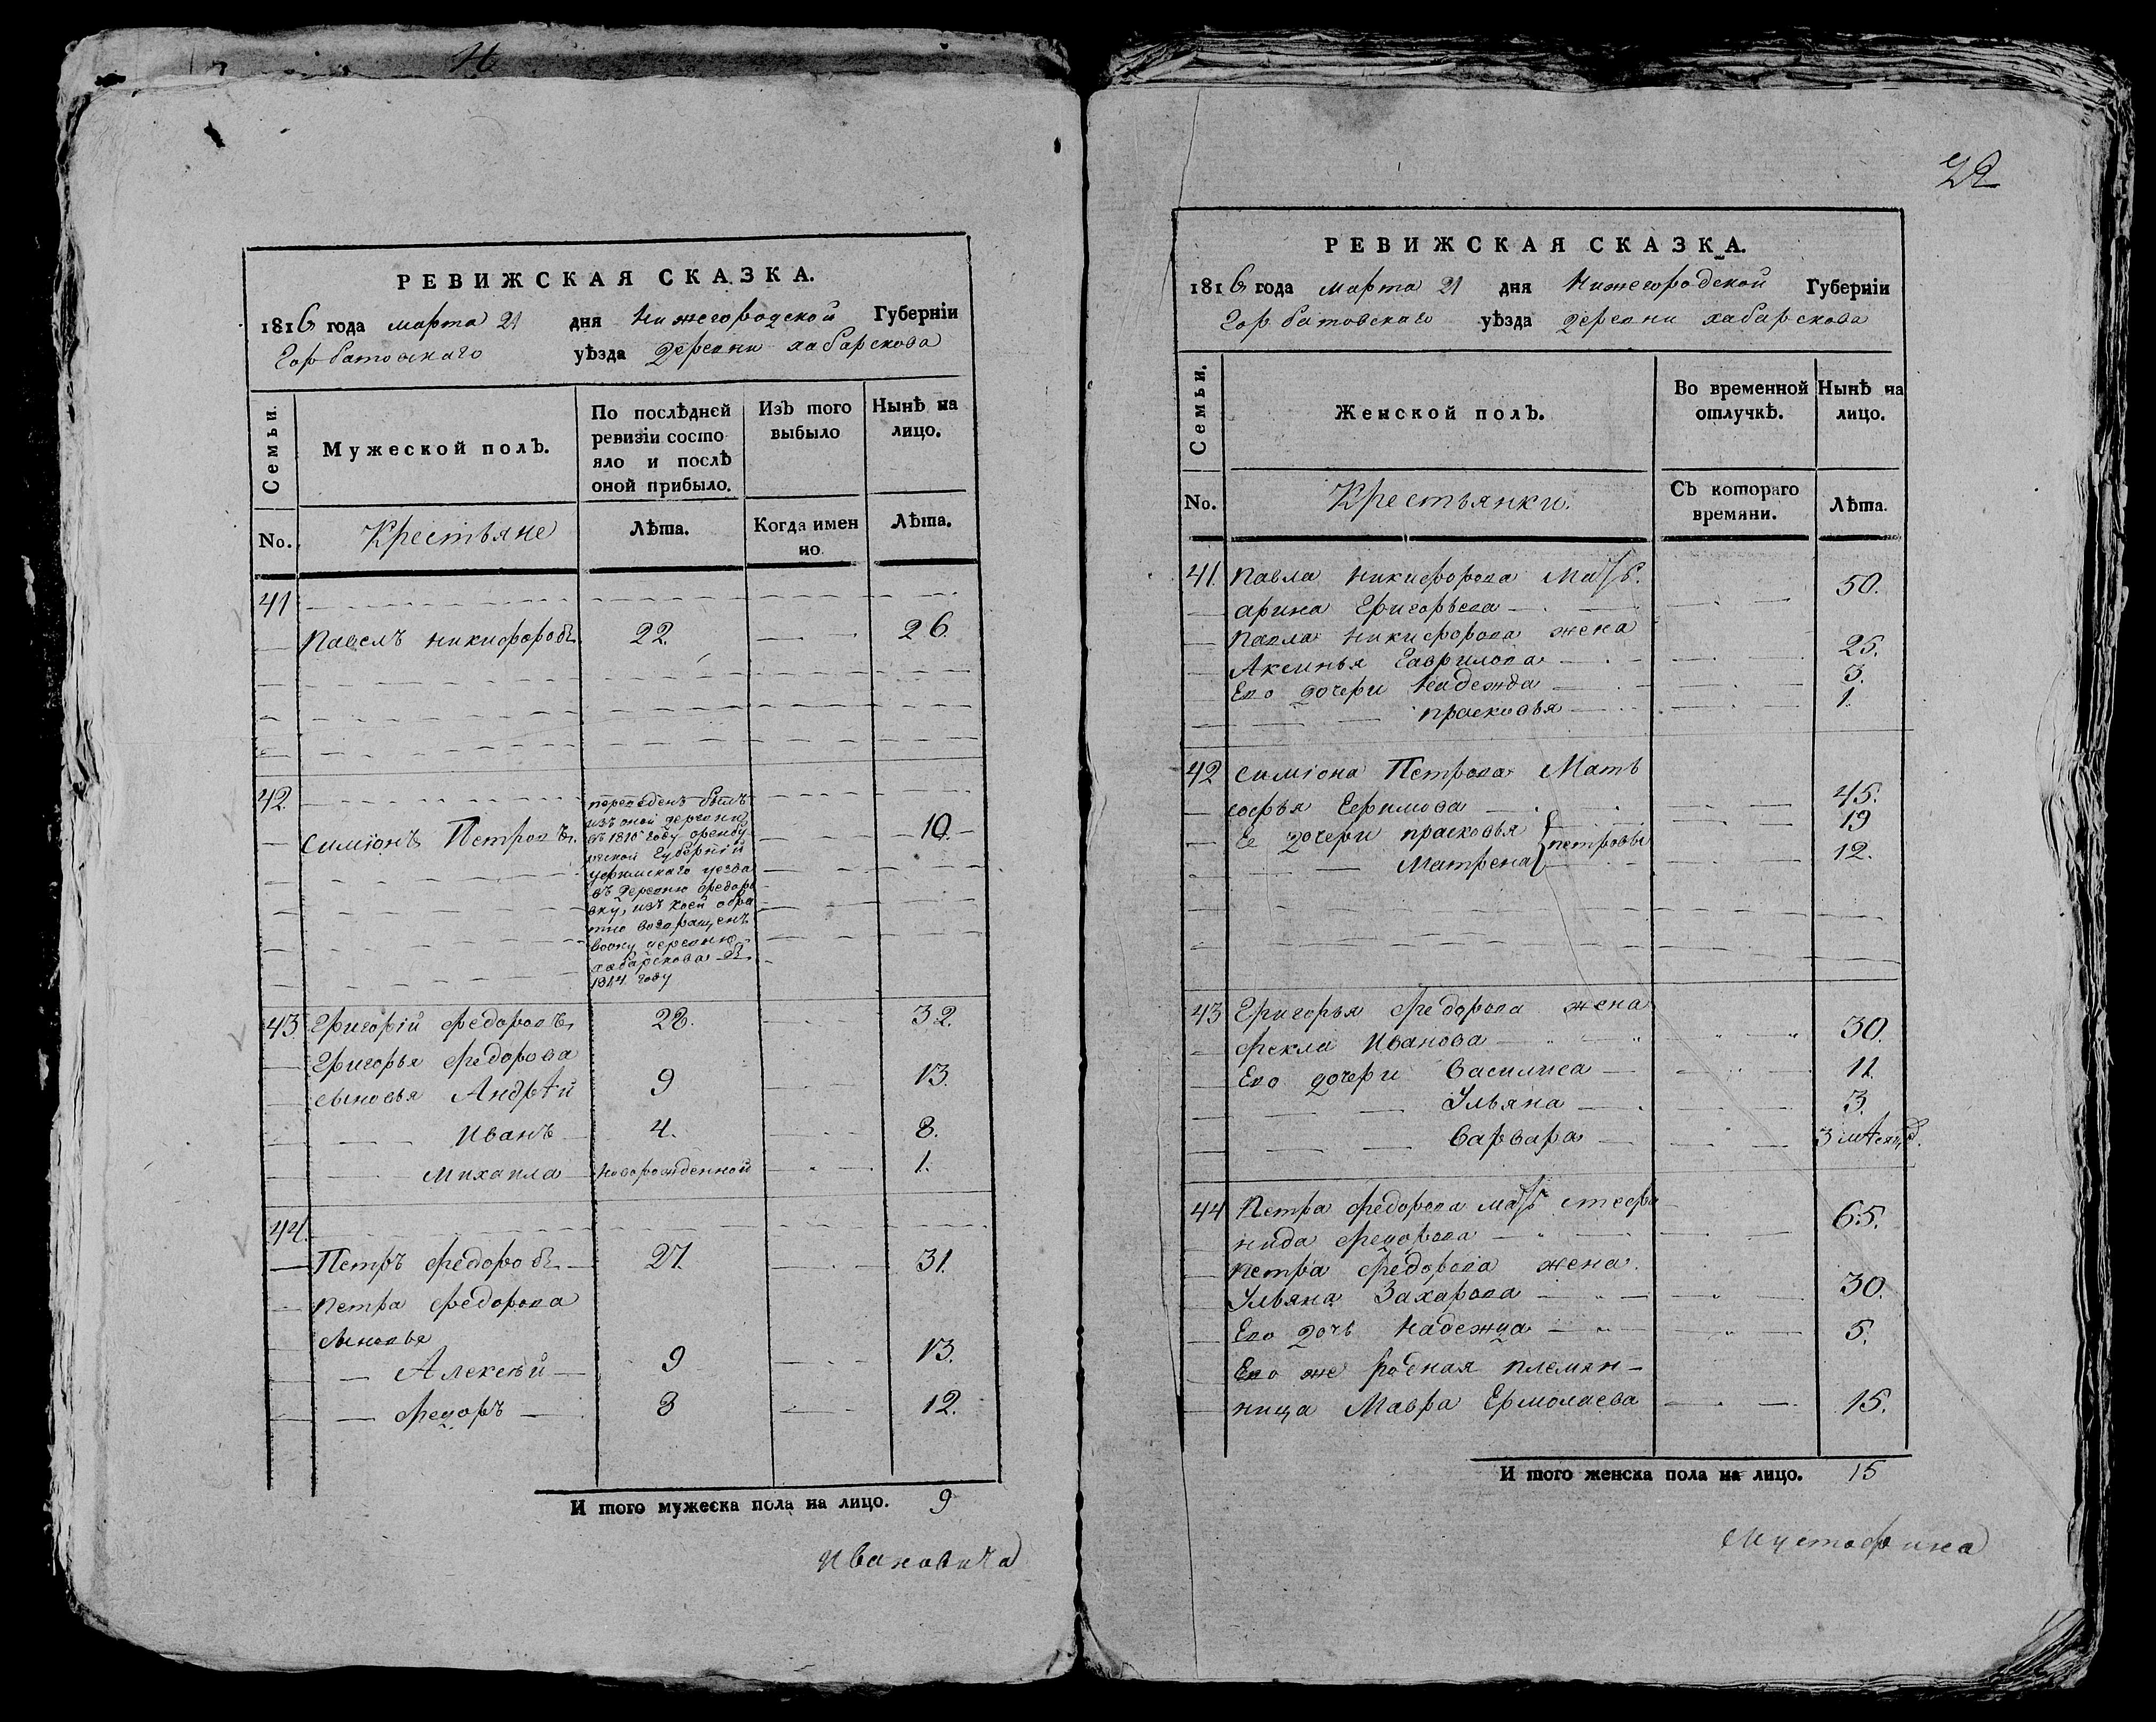 РЕВИЖСКАЯ СКАЗКА.
1816 года марта 21 дня Нижегородской Губерніи
Горбатовскаго уѣзда деревни хабарскова
Семьи.
Мужеской полъ.
По послѣдней
ревизіи состо
яло и послѣ
оной прибыло.
Изъ того
выбыло
Нынѣ на
лицо.
No.
Крестьяне
Лѣта.
Когда имен
но.
Лѣта.
41
Павелъ никифоровъ 22. 26.
42.
Симіонъ Петровъ. 10.
переведенъ былъ
изъ оной деревни
въ 1810 году оренбу
ргской Губерніи
уфимскаго уезда
въ деревню федоро
вку, изъ коей обра
тно возвращенъ
воону деревню
хабарскова въ
1814 году
43. Григорій федоровъ 28. 32.
Григорья федорова
сыновья Андрѣй 9 13.
Иванъ 4. 8.
Михаила новорожденной 1.
44.
Петръ федоровъ 27. 31.
петра федорова
сыновья
Алексѣй 9 13.
федоръ 8 12.
И того мужеска пола на лицо. 9
Ивановича
72
РЕВИЖСКАЯ СКАЗКА.
1816 года марта 21 дня Нижегородской Губерніи
Горбатовскаго уѣзда деревни хабарскова
Семьи.
Женской полъ.
Во временной
отлучкѣ.
Нынѣ на
лицо.
No.
Крестьянки.
Съ котораго
времяни.
Лѣта.
41. Павла никифорова мать.
арина Григорьева 50.
павла никифорова жена
Аксинья Гаврилова 25.
Ево дочери Надежда 3.
прасковья 1.
42 симіона Петрова Мать
софья Ефимова 45.
Ее дочери прасковья петровы 19
Матрена 12.
43 Григорья федорова жена
фекла Иванова 30.
Ево дочери василиса 11.
Ульяна 3.
варвара 3 мѣсяцъ.
44 Петра федорова мать стефа
нида федорова 65.
петра федорова жена.
Ульяна Захарова 30.
Ево дочь надежда 5.
Ево же родная племян-
ница Мавра Ермолаева 15.
И того женска пола на лицо. 15
Мустафина